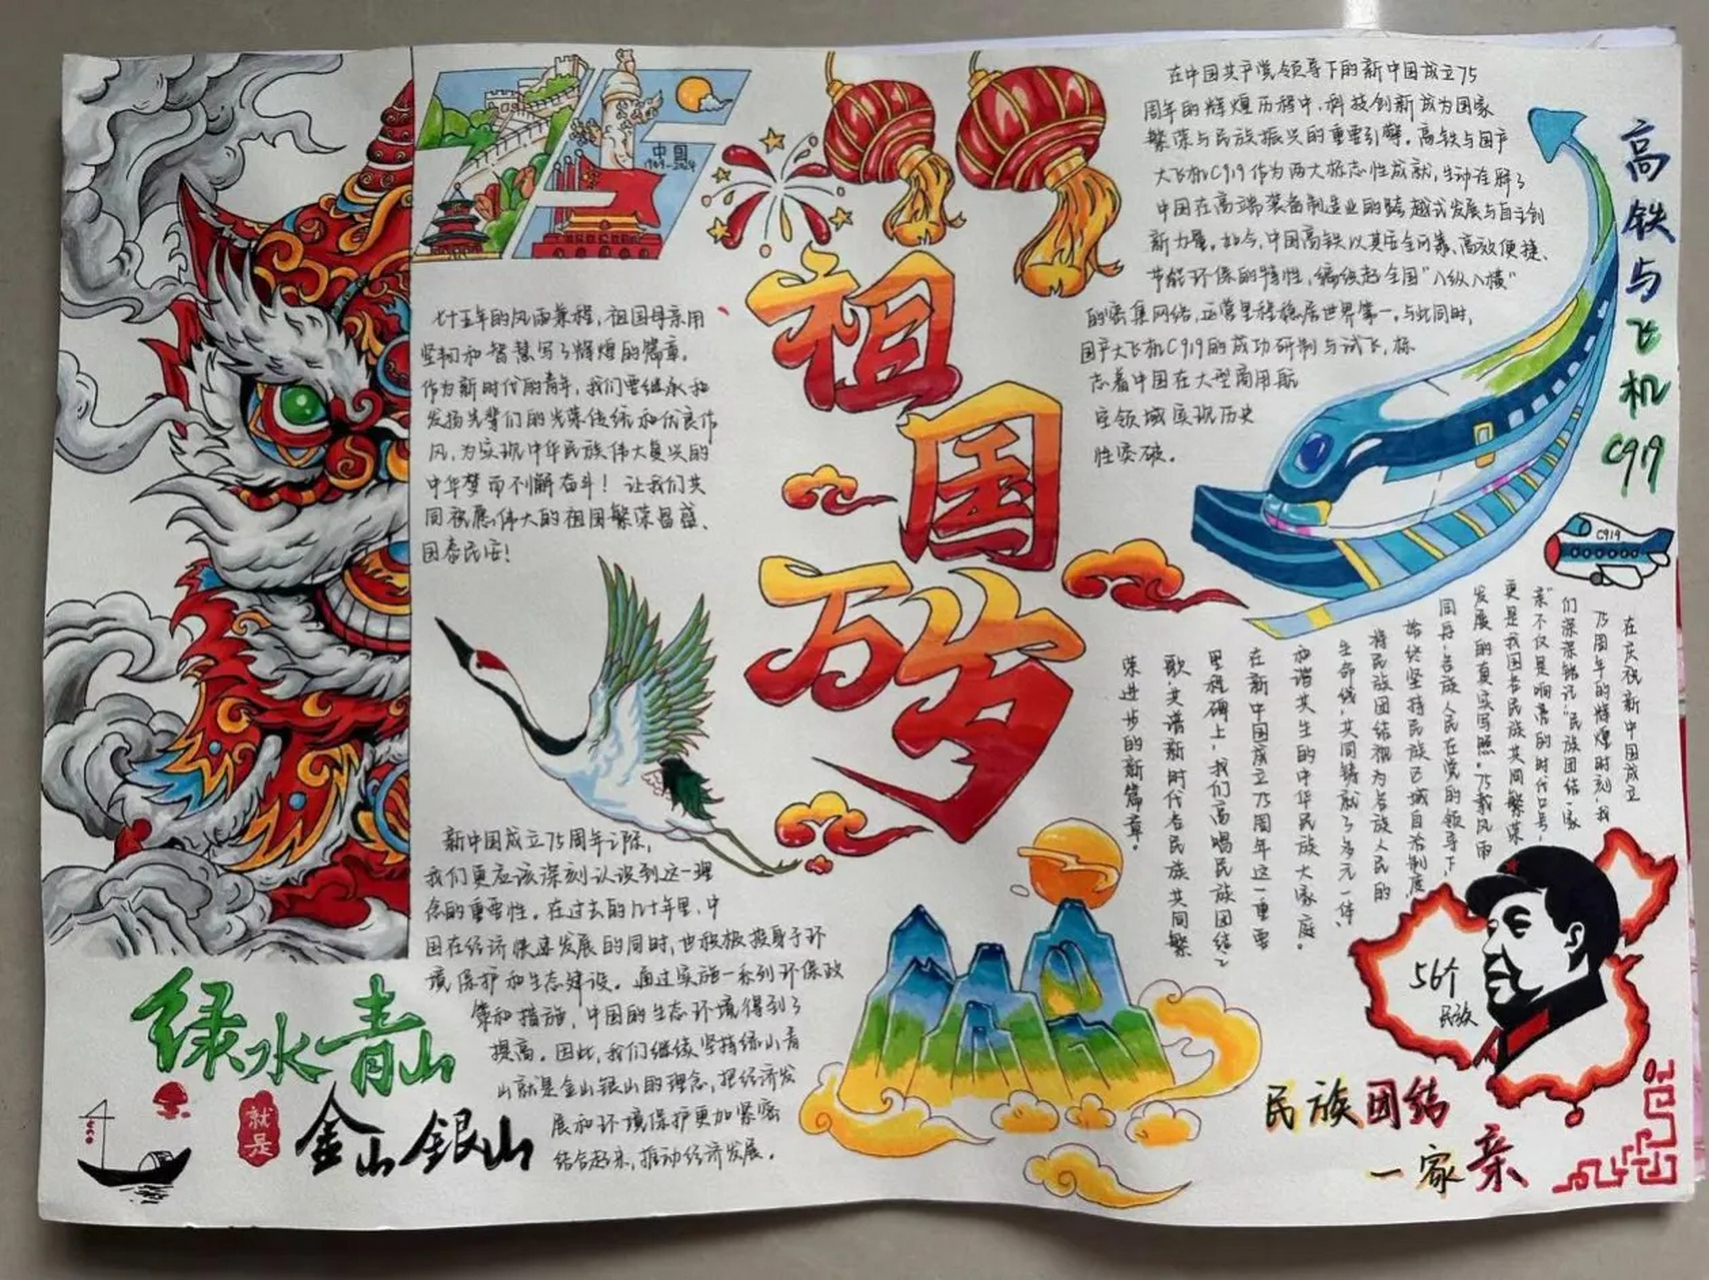 中国
1949-2024
祖国万岁
七十五年的风雨兼程，祖国母亲用
坚韧和智慧写了辉煌的篇章。
作为新时代的青年，我们要继承和
发扬先辈们的光荣传统和优良作
风，为实现中华民族伟大复兴的
中华梦而不懈奋斗！让我们共
同祝愿伟大的祖国繁荣昌盛、
国泰民安！
在中国共产党领导下的新中国成立75
周年的辉煌历程中，科技创新成为国家
繁荣与民族振兴的重要引擎。高铁与国产
大飞机C919作为两大标志性成就，生动诠释了
中国在高端装备制造业的跨越式发展与自主创
新力量。如今，中国高铁以其安全可靠、高效便捷、
节能环保的特性，编织起全国"八纵八横"
的密集网络，运营里程稳居世界第一。与此同时，
国产大飞机C919的成功研制与试飞，标
志着中国在大型商用航
空领域实现历史
性突破。
高铁与飞机C919
C919
在庆祝新中国成立
75周年的辉煌时刻，我
们深深铭记，"民族团结一家
亲"不仅是响亮的时代口号，
更是我国各民族共同繁荣
发展的真实写照。75载风雨
同舟，各族人民在党的领导下
始终坚持民族区域自治制度，
将民族团结视为各族人民的
生命线，共同铸就了多元一体、
和谐共生的中华民族大家庭。
在新中国成立75周年这一重要
里程碑上，我们高唱民族团结之
歌，共谱新时代各民族共同繁
荣进步的新篇章。
新中国成立75周年之际，
我们更应该深刻认识到这一理
念的重要性。在过去的几十年里，中
国在经济快速发展的同时，也积极投身于环
境保护和生态建设。通过实施一系列环保政
策和措施，中国的生态环境得到了
提高。因此，我们继续坚持绿山青
山就是金山银山的理念，把经济发
展和环境保护更加紧密
结合起来，推动经济发展。
绿水青山
就是
金山银山
56个
民族
民族团结
一家亲